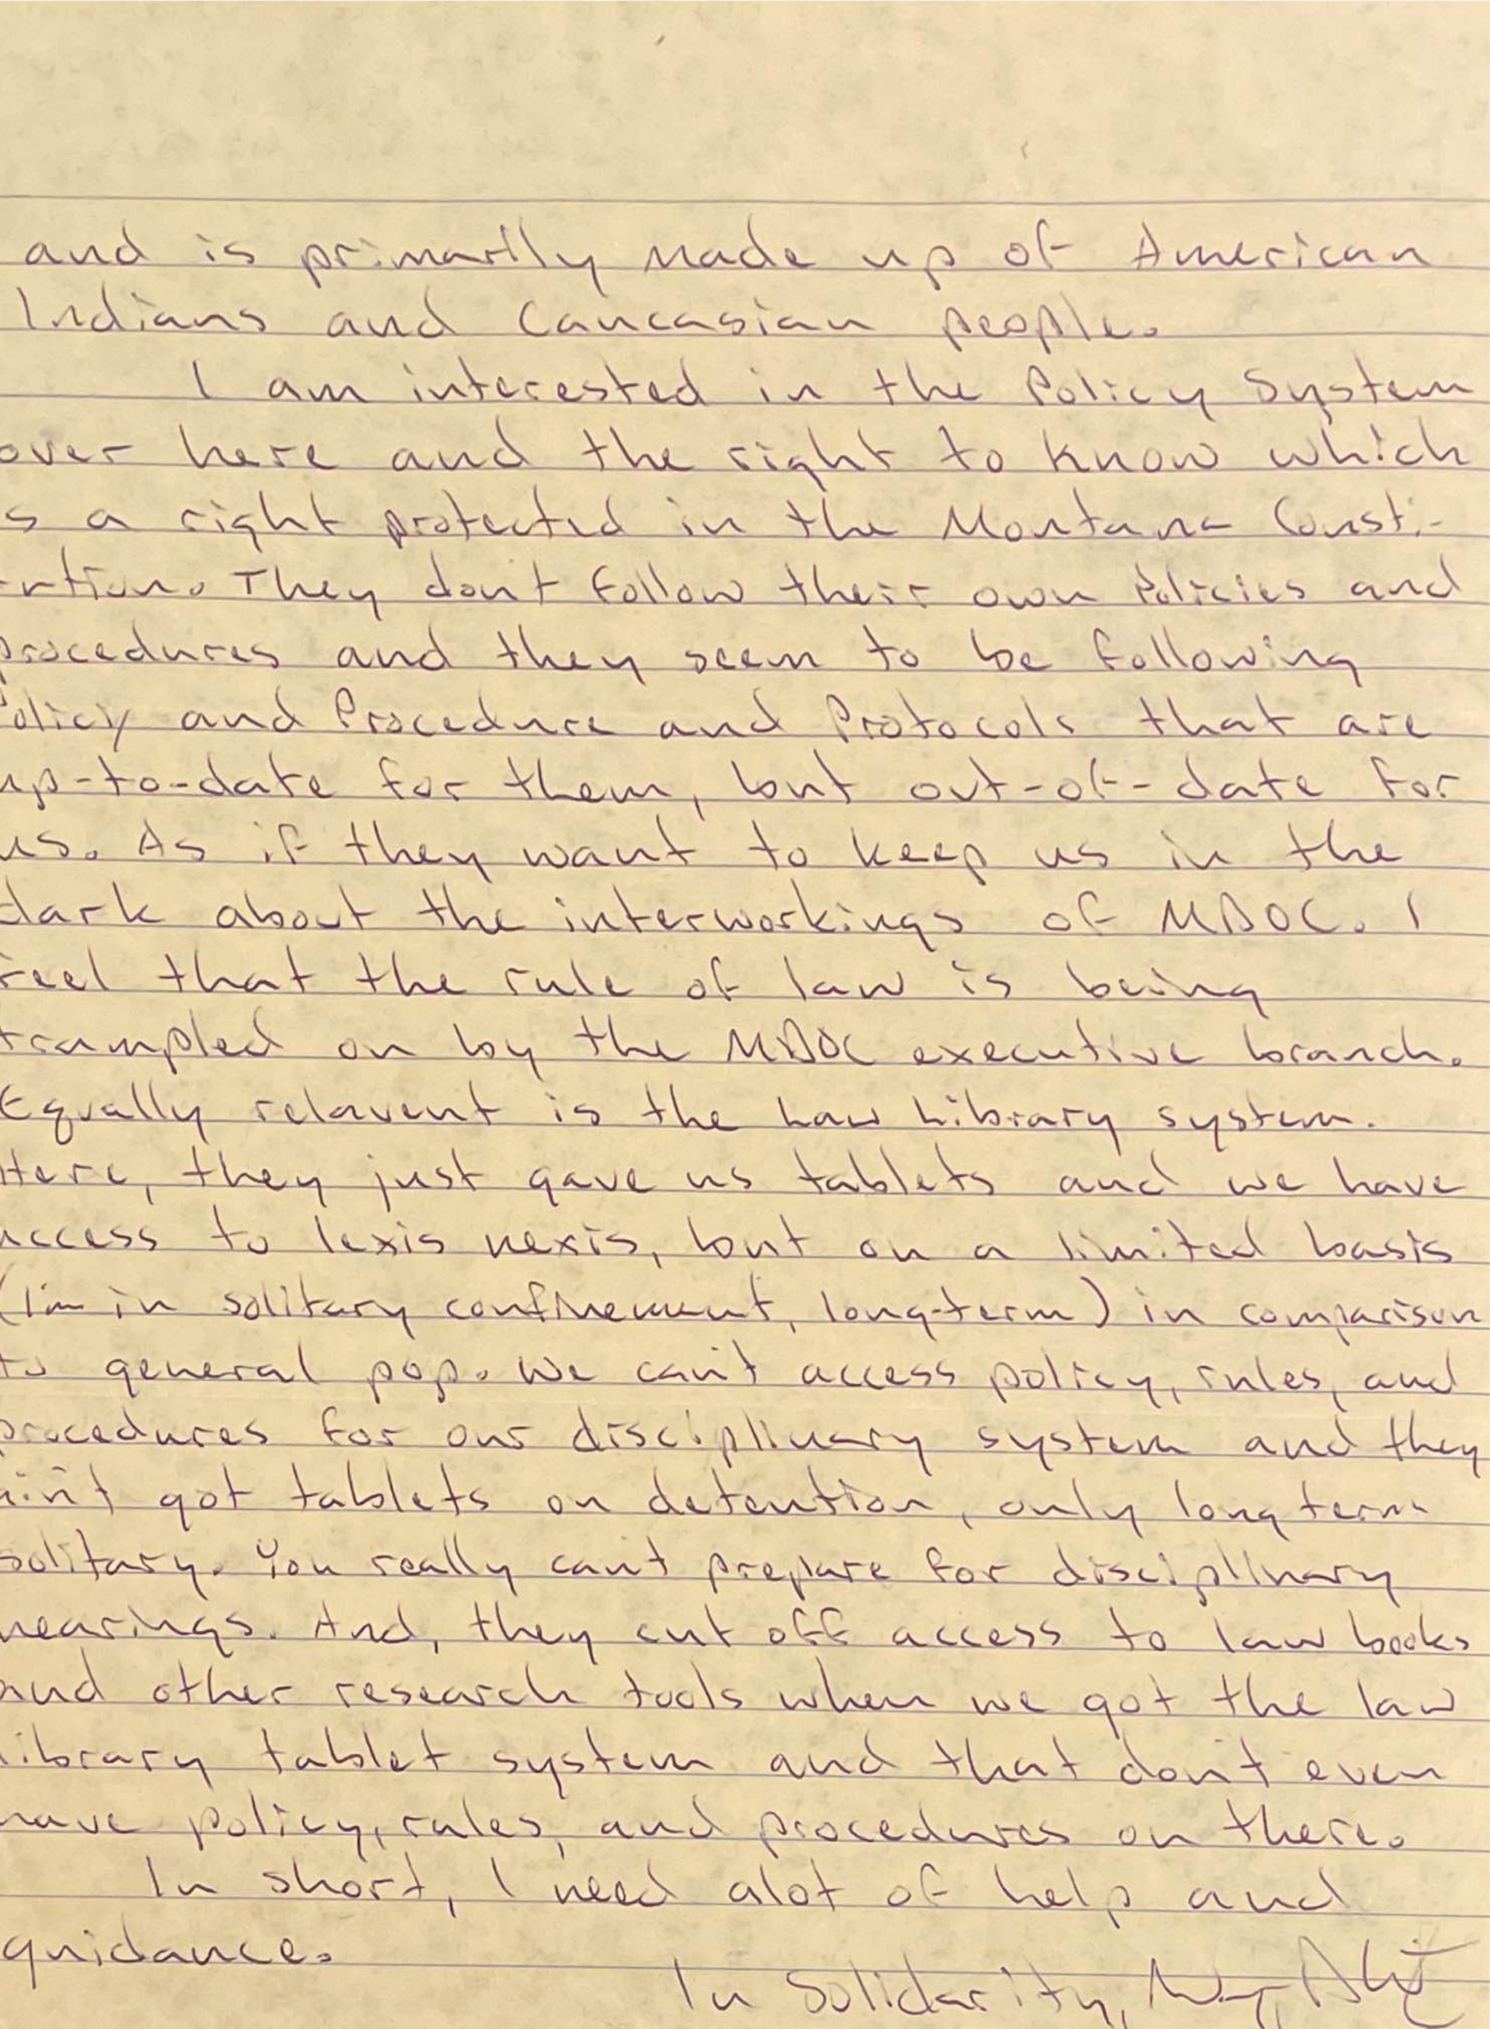 and is primarily made up of American
Indians and Caucasian people.
I am interested in the Policy System
over here and the right to know which
s a right protected in the Montana Consti-
ution. They don't follow their own Policies and
procedures and they seem to be following
Policy and Procedure and Protocols that are
up-to-date for them, but out-of-date for
us. As if they want to keep us in the
dark about the interworkings of MDOC. I
feel that the rule of law is being
trampled on by the MDOC executive branch.
Equally relavent is the Law Library system.
Here, they just gave us tablets and we have
access to lexis nexis, but on a limited basis
(I'm in solitary confinement, long-term) in comparison
to general pop. We can't access policy, rules, and
procedures for our disciplinary system and they
ain't got tablets on detention, only long term
solitary. You really can't prepare for disciplinary
hearings. And, they cut off access to law books
and other research tools when we got the law
library tablet system and that don't even
have policy, rules, and procedures on there.
In short, I need alot of help and
guidance.
In Solidarity,